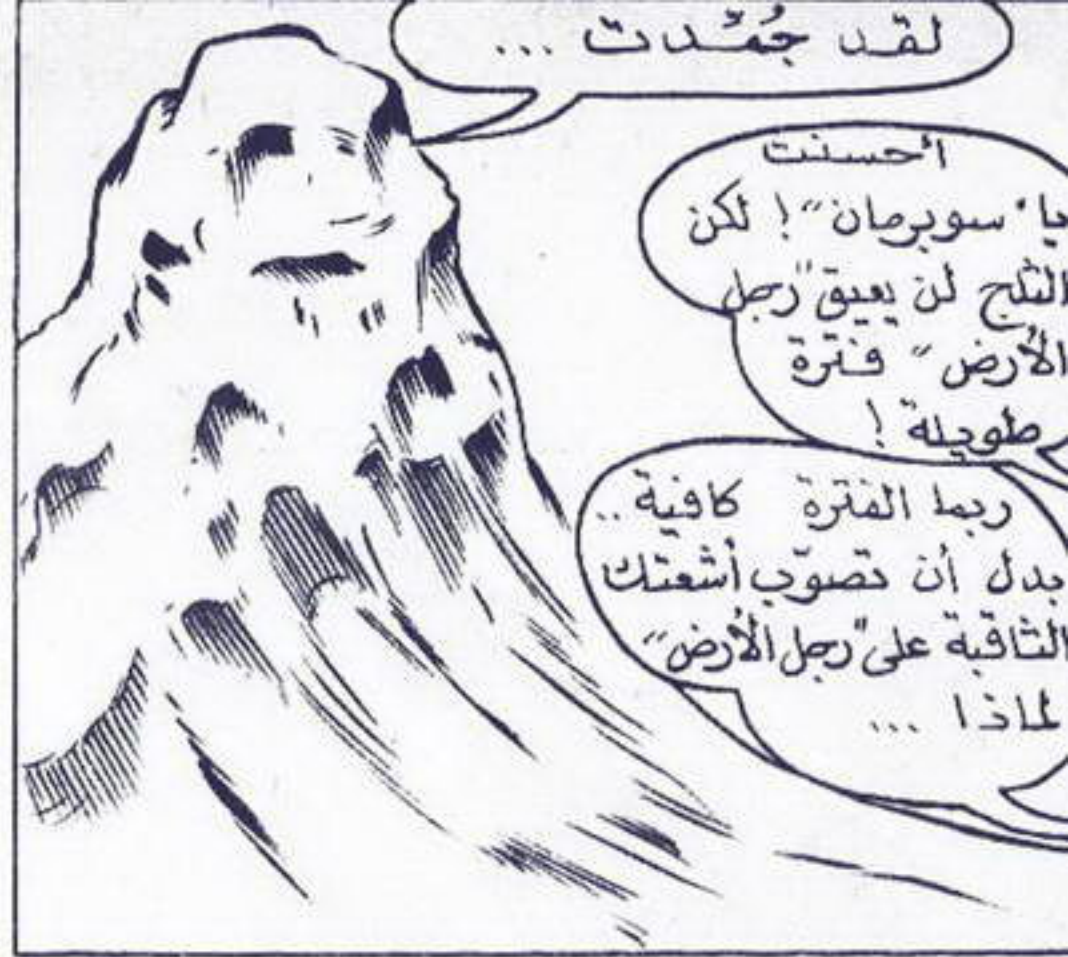 لقد جُمّدت ...
أحسنت
يا "سوبرمان"! لكن
الثلج لن يعيق "رجل
الأرض" فترة
طويلة!
ربما الفترة كافية ..
بدل أن تصوّب أشعتك
الثاقبة على "رجل الأرض"
لماذا ...